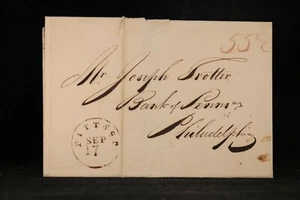 55½
Mr. Joseph Trotter
Bank of Penn
Philadelphia
PITTSB
SEP
17